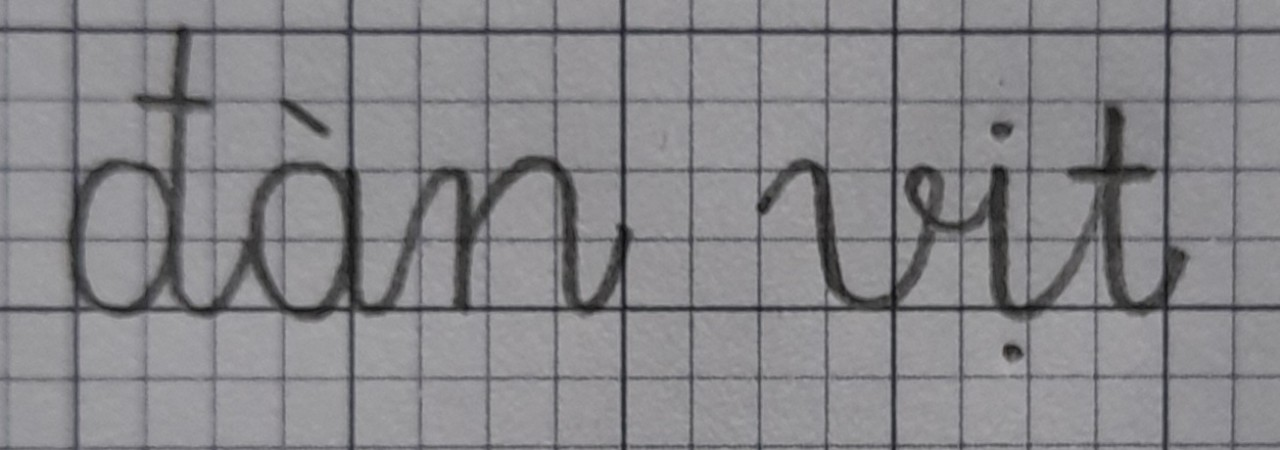 đàn vịt